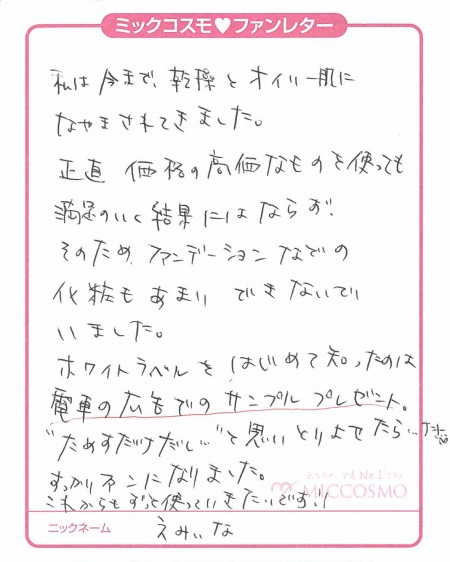 ミックコスモ♥ファンレター
私は今まで、乾燥とオイリー肌に
なやまされてきました。
正直 価格の高価なものを使っても
満足のいく結果にはならず、
そのため、ファンデーションなどの
化粧もあまり できないで
いました。
ホワイトラベルをはじめて知ったのは
電車の広告でのサンプルプレゼント。
“ためすだけだし…”と思いとりよせたら…
すっかりファンになりました。
これからもずっと使っていきたいです!!
No.1
MICCOSMO
ニックネーム
えみぃな